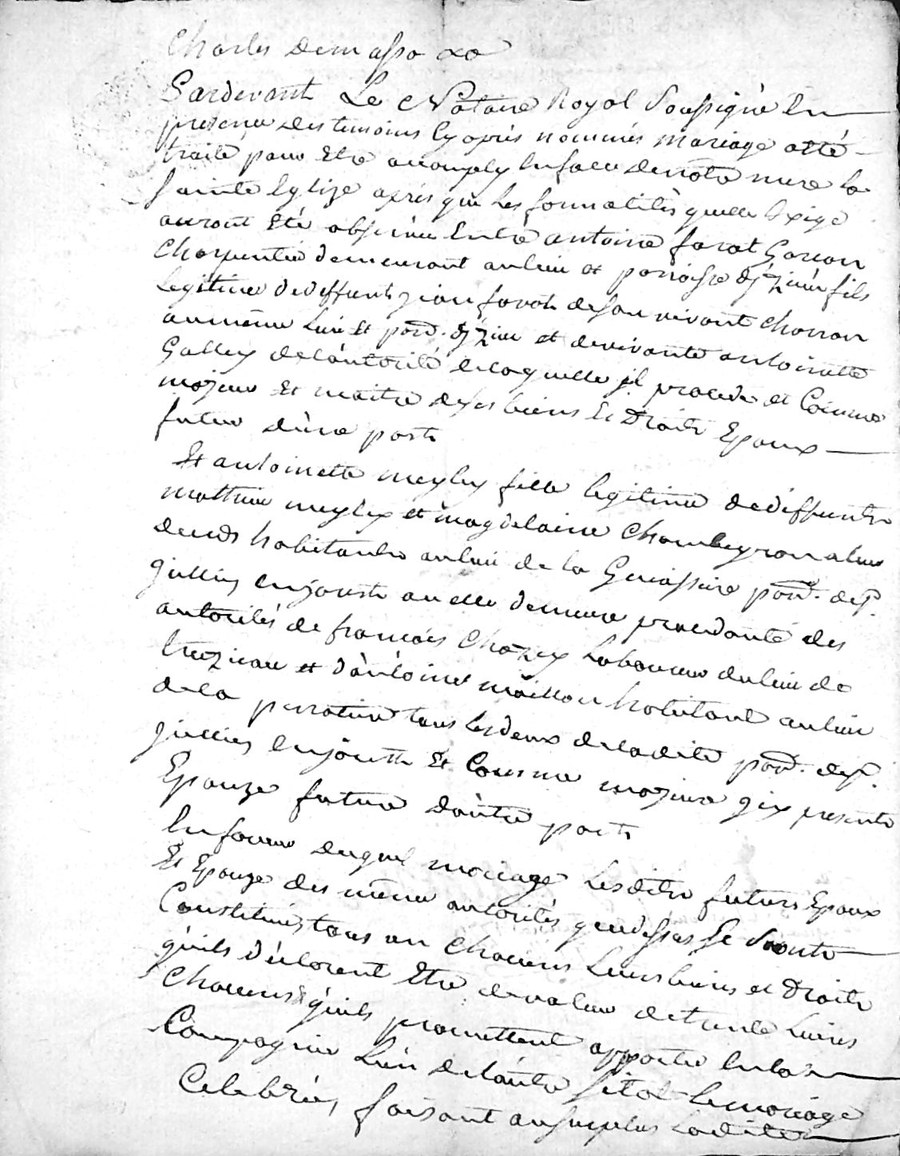 Charles demasso
Pardevant Le Notaire Royal Soussigné En
presence des temoins cy apres nommés mariage a eté
traité pour Etre accomply En face de notre mere la
Sainte Eglize après que les formalités quelle Exige
auront Eté observée Entre antoine farat Garcon
Charpentié demeurant au lieu et parroisse fils
Legitime de deffunt jean farat de Son vivant Charron
au même Lieu et parr. et de vivante antoinette
Galley de l'autorité de laquelle il procede et Comme
majeur et maitre de ses biens Et Droits Epoux
futur d'une part
Et antoinette meyley fille legitime de deffunts
mathieu meyley et magdelaine Chambeyron a leur
deceds habitants au lieu de la parr. de St.
jullien En jarest ou elle demeure procedante des
autorités de francois Chazey Laboureur du lieu de
et d'antoine habitant au lieu
de la tous les deux de ladite parr. de St.
jullien En jarest Et Comme majeure presents
Epouze future d'autre part
En faveur duquel mariage Lesdits futurs Epoux
Et Epouze des même autorités que dessus Se Sont
Constitués tous un Chacuns Leurs biens et Droits
qu'ils déclarent Etre de valeur de trente Livres
Chacuns qu'ils promettent apporter En la
Compagnie L'un de l'autre sitot Le mariage
Celebrée, faisant au Surplus ladite